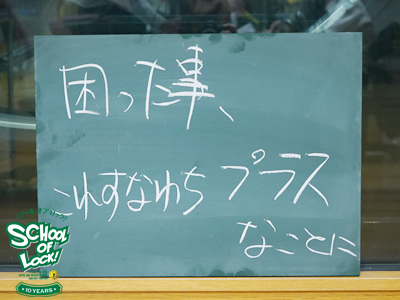 困った事、
これすなわち プラス
なことに
SCHOOL
OF
LOCK!
10 YEARS